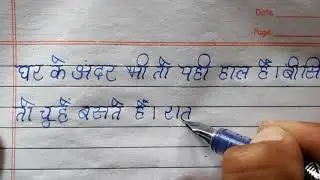 Date
Page
घर के अंदर भी तो यही हाल है। बीसि
तो चूहे बसते हैं। रात